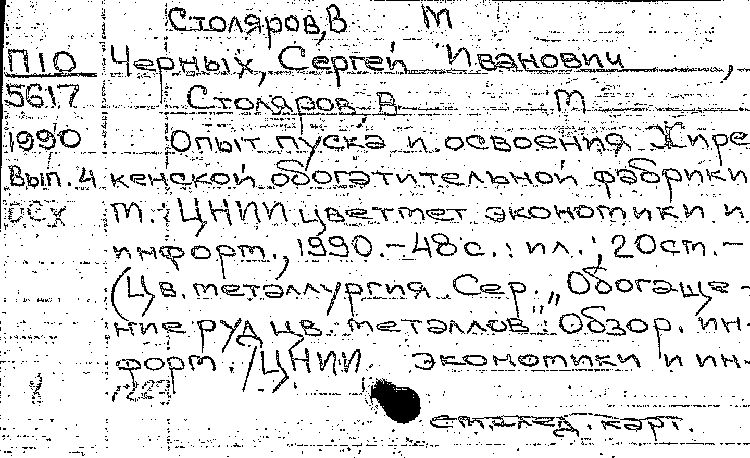 Столяров, В М
П10 Черных, Сергей Иванович,
5617 Столяров В М
1990 Опыт пуска и освоения Жире
Вып. 4 кенской обогатительной фабрики
ОСХ М.: ЦНИИцветмет экономики и
информ., 1990.-48 с.: ил.; 20см.-
(Цв. металлургия Сер. „Обогаще-
ние руд цв. металлов": Обзор. ин-
форм. / ЦНИИ экономики и ин-
см.след. карт.